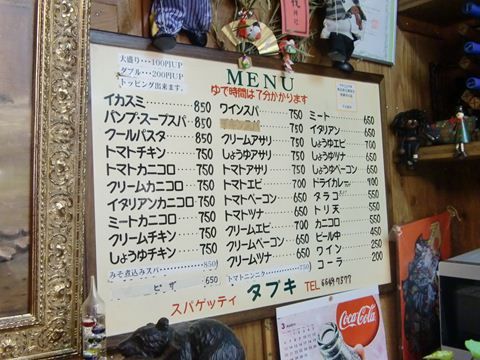 大盛り…100円UP
ダブル…200円UP
トッピング出来ます。
MENU
ゆで時間は7分かかります
イカスミ 850
パンプ・スープスパ 850
クールパスタ 850
トマトチキン 750
トマトカニコロ 750
クリームカニコロ 750
イタリアンカニコロ 750
ミートカニコロ 750
クリームチキン 750
しょうゆチキン 750
みそ煮込みスパ 850
ピザ
ワインスパ 750
750
クリームアサリ 750
しょうゆアサリ 750
トマトアサリ 750
トマトエビ 700
トマトベーコン 750
トマトツナ 650
クリームエビ 700
クリームベーコン 650
クリームツナ 650
トマトニンニク 750
ミート 650
イタリアン 650
しょうゆエビ 700
しょうゆツナ 650
しょうゆベーコン 650
ドライカレー 700
タラコ 550
トリ天 550
カニコロ 550
ビール中 450
ワイン 250
コーラ 200
スパゲッティ タブキ TEL
Coca-Cola
3